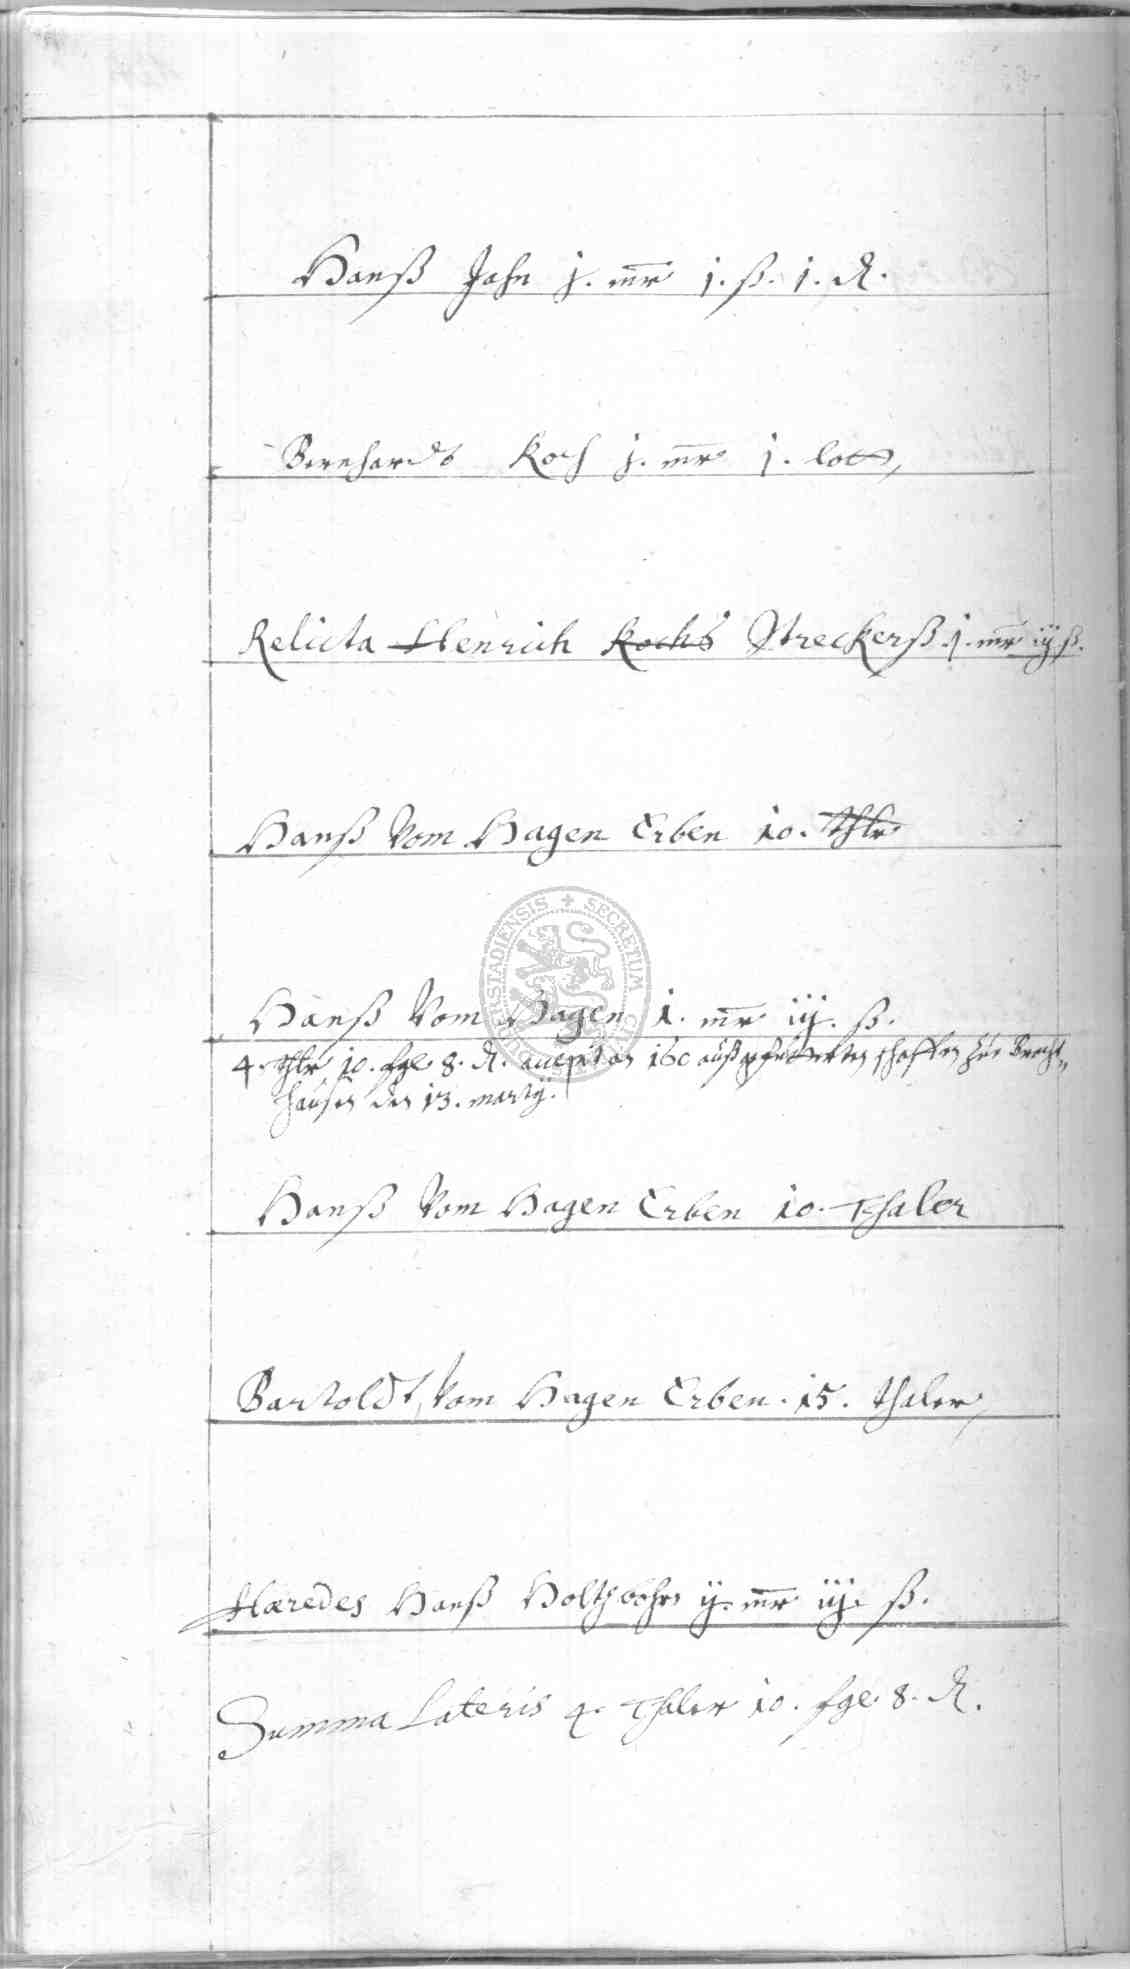 Hanß Jahn j. mr j. ß. j. d.
Bernhardt Koch j. mr j. lott,
Relicta Henrich Kochs Streckerß j. mr iij ß.
Hanß Vom Hagen Erben 10. thlr
Hanß Vom Hagen 1. mr iij. ß.
4. thlr 10. sgl 8. d. accepi von 160 außgefutterten schaffen zue Brecht„
hausen den 13. martij.
Hanß Vom Hagen Erben 10. Thaler
Bartoldt Vom Hagen Erben. 15. thaler,
Hæredes Hanß ij. mr iij. ß.
Summa Lateris 4. Thaler 10. sgl 8. d.
SECRETUM